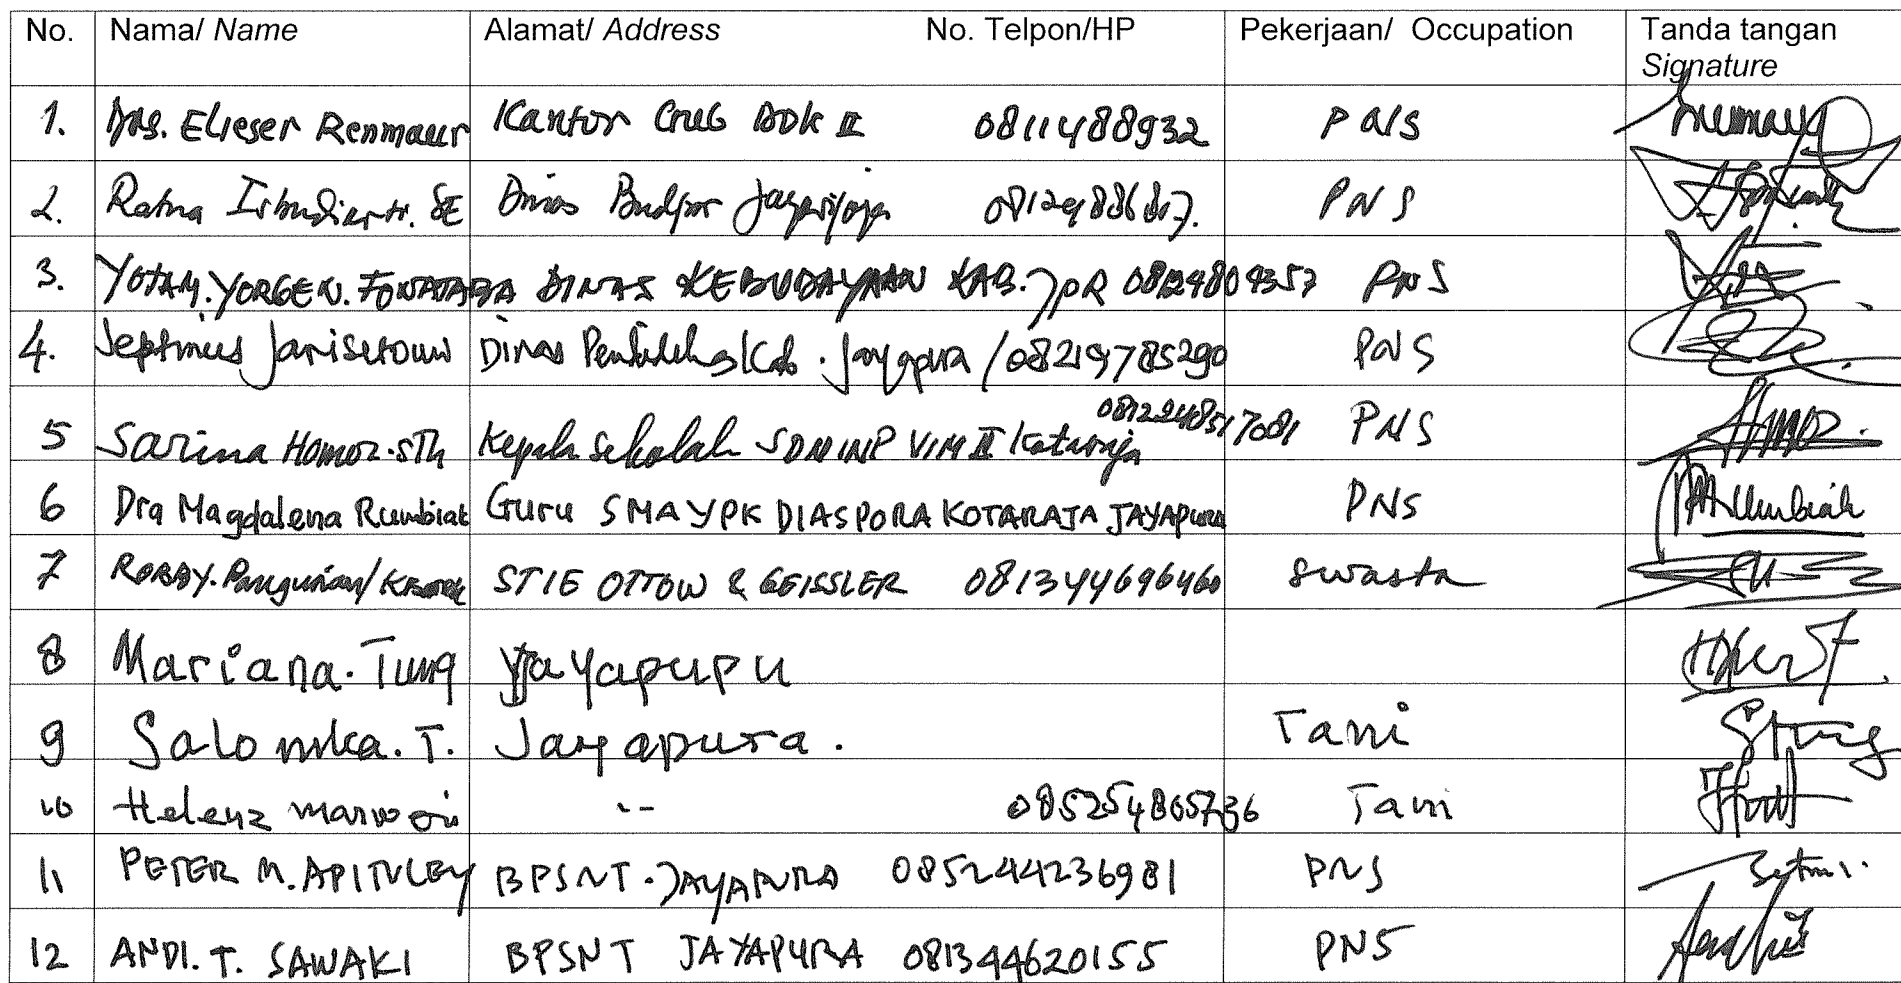 No. Nama/ Name Alamat/ Address No. Telpon/HP Pekerjaan/ Occupation Tanda tangan
Signature
1. Drs. Elieser Renmaur Kantor Gub DOK II 0811488932 PNS
2. Ratna SE Dinas 
3. YOTAM. YORGEN. FONATABA DINAS KEBUDAYAAN KAB. JPR 08124804357 PNS
4. Septinus Jarisetouw Dinas Kab. Jayapura / 082197785290 PNS
5 Sarina Homor. STh Kepala Sekolah SDN INP VIM II Kotaraja PNS
6 Dra Magdalena Rumbiak Guru SMA YPK DIASPORA KOTARAJA JAYAPURA PNS
7 ROBBY. STIE OTTOW & GEISSLER 081344696460 swasta
8 Mariana. Tung Yayapupu
9 Salomka. T. Jayapura. Tani
10 Helena 085254865736 Tani
11 PETER M. APITULEY BPSNT. JAYAPURA 085244236981 PNS
12 ANDI. T. SAWAKI BPSNT JAYAPURA 081344620155 PNS